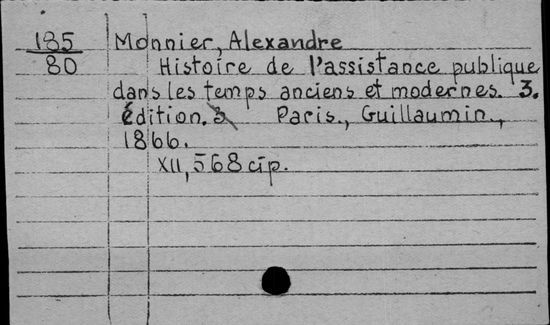 185 Monnier, Alexandre
80 Histoire de l'assistance publique
dans les temps anciens et modernes. 3.
édition. 3 Paris., Guillaumin.,
1866.
XII, 568 cтр.